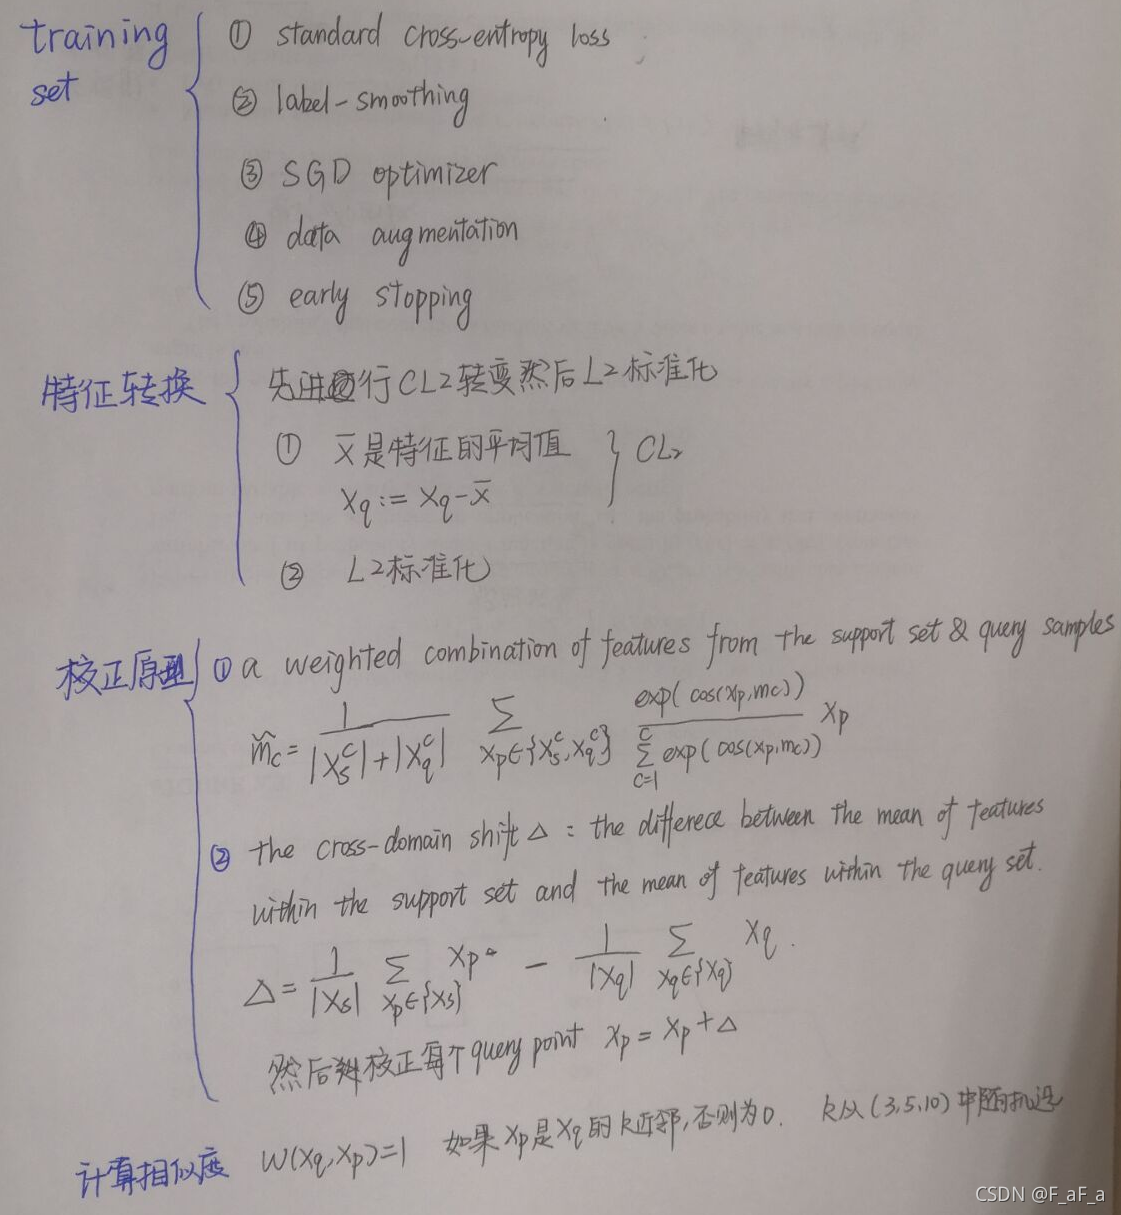 training set
① standard cross-entropy loss
② label-smoothing
③ SGD optimizer
④ data augmentation
⑤ early stopping
特征转换
先进行CL2转变然后L2标准化
① x̄是特征的平均值
CL₂
Xq := Xq - x̄
② L2标准化
校正原型
① a weighted combination of features from the support set & query samples
m̃c = 1/(|Xs^c|+|Xq^c|) Σ_{Xp∈{Xs^c, Xq^c}} exp(cos(Xp,mc)) / Σ_{c=1}^{C} exp(cos(Xp,mc)) Xp
② the cross-domain shift Δ : the differece between the mean of features
within the support set and the mean of features within the query set.
Δ = 1/|Xs| Σ_{Xp∈{Xs}} Xp - 1/|Xq| Σ_{Xq∈{Xq}} Xq .
然后校正每个query point Xp = Xp + Δ
计算相似度 W(Xq,Xp)=1 如果Xp是Xq的k近邻,否则为0. k从(3,5,10)中随机选
CSDN @F_aF_a